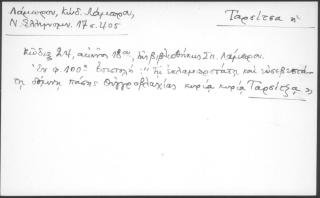 Λάμπρου, Κώδ. Λάμπρου,
Ν. Ἑλληνομν. 17 σ. 405
Ταρσίτσα ἡ
Κώδιξ 24, αἰῶνος 18ου, τῆς βιβλιοθήκης Σπ. Λάμπρου.
Ἐν φ. 100α ἐπιστολή: "Τῇ ἐκλαμπροτάτῃ καὶ εὐσεβεστά-
τῃ δόμνῃ πάσης Οὐγγροβλαχίας κυρίᾳ κυρίᾳ Ταρσίτζᾳ"